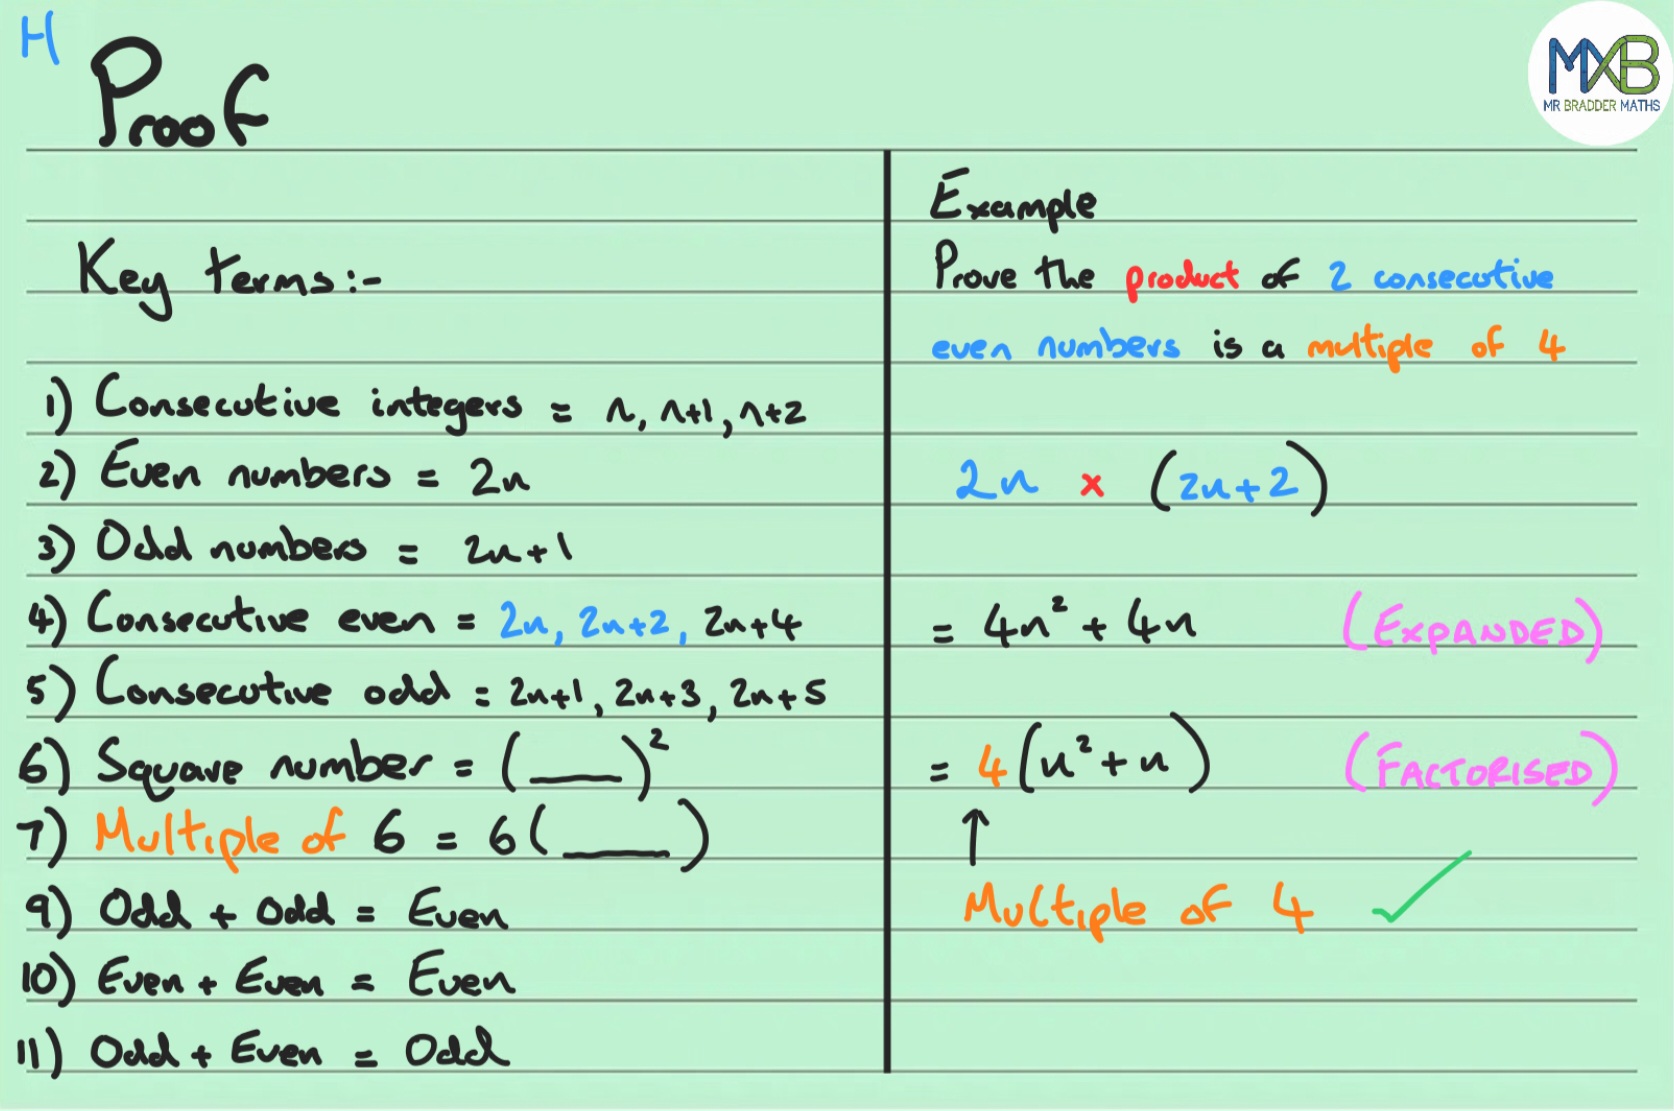 H
Proof
MXB
MR BRADDER MATHS
Key terms:-
1) Consecutive integers = n, n+1, n+2
2) Even numbers = 2n
3) Odd numbers = 2n+1
4) Consecutive even = 2n, 2n+2, 2n+4
5) Consecutive odd = 2n+1, 2n+3, 2n+5
6) Square number = (____)²
7) Multiple of 6 = 6(____)
9) Odd + Odd = Even
10) Even + Even = Even
11) Odd + Even = Odd
Example
Prove the product of 2 consecutive
even numbers is a multiple of 4
2n × (2n+2)
= 4n² + 4n (EXPANDED)
= 4(n² + n) (FACTORISED)
↑
Multiple of 4 ✓